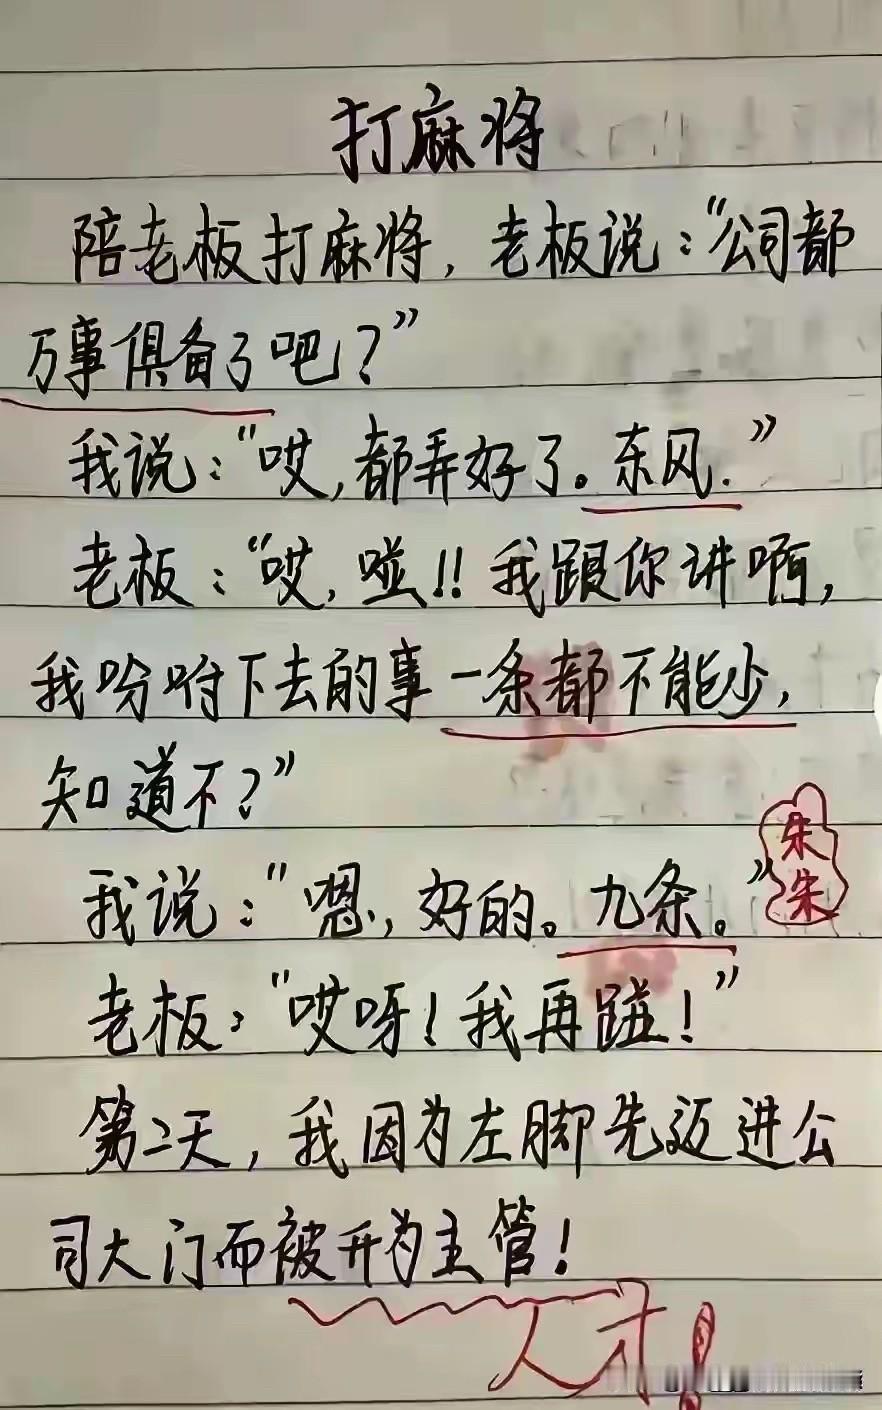 打麻将
陪老板打麻将，老板说：“公司都
万事俱备了吧？”
我说：“哎，都弄好了。东风.”
老板：“哎，碰!! 我跟你讲啊，
我吩咐下去的事一条都不能少，
知道不？”
朱朱
我说：“嗯，好的。九条。”
老板：“哎呀！我再碰！”
第二天，我因为左脚先迈进公
司大门而被升为主管！
人才！